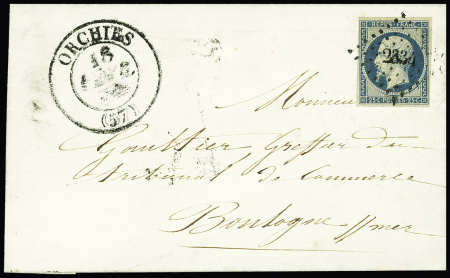 ORCHIES
16
(57)
REPUB. FRANC.
2334
25 C. POSTES 25 C.
Monsieur
Gouttier Greffier du
Tribunal de Commerce
Boulogne s/mer